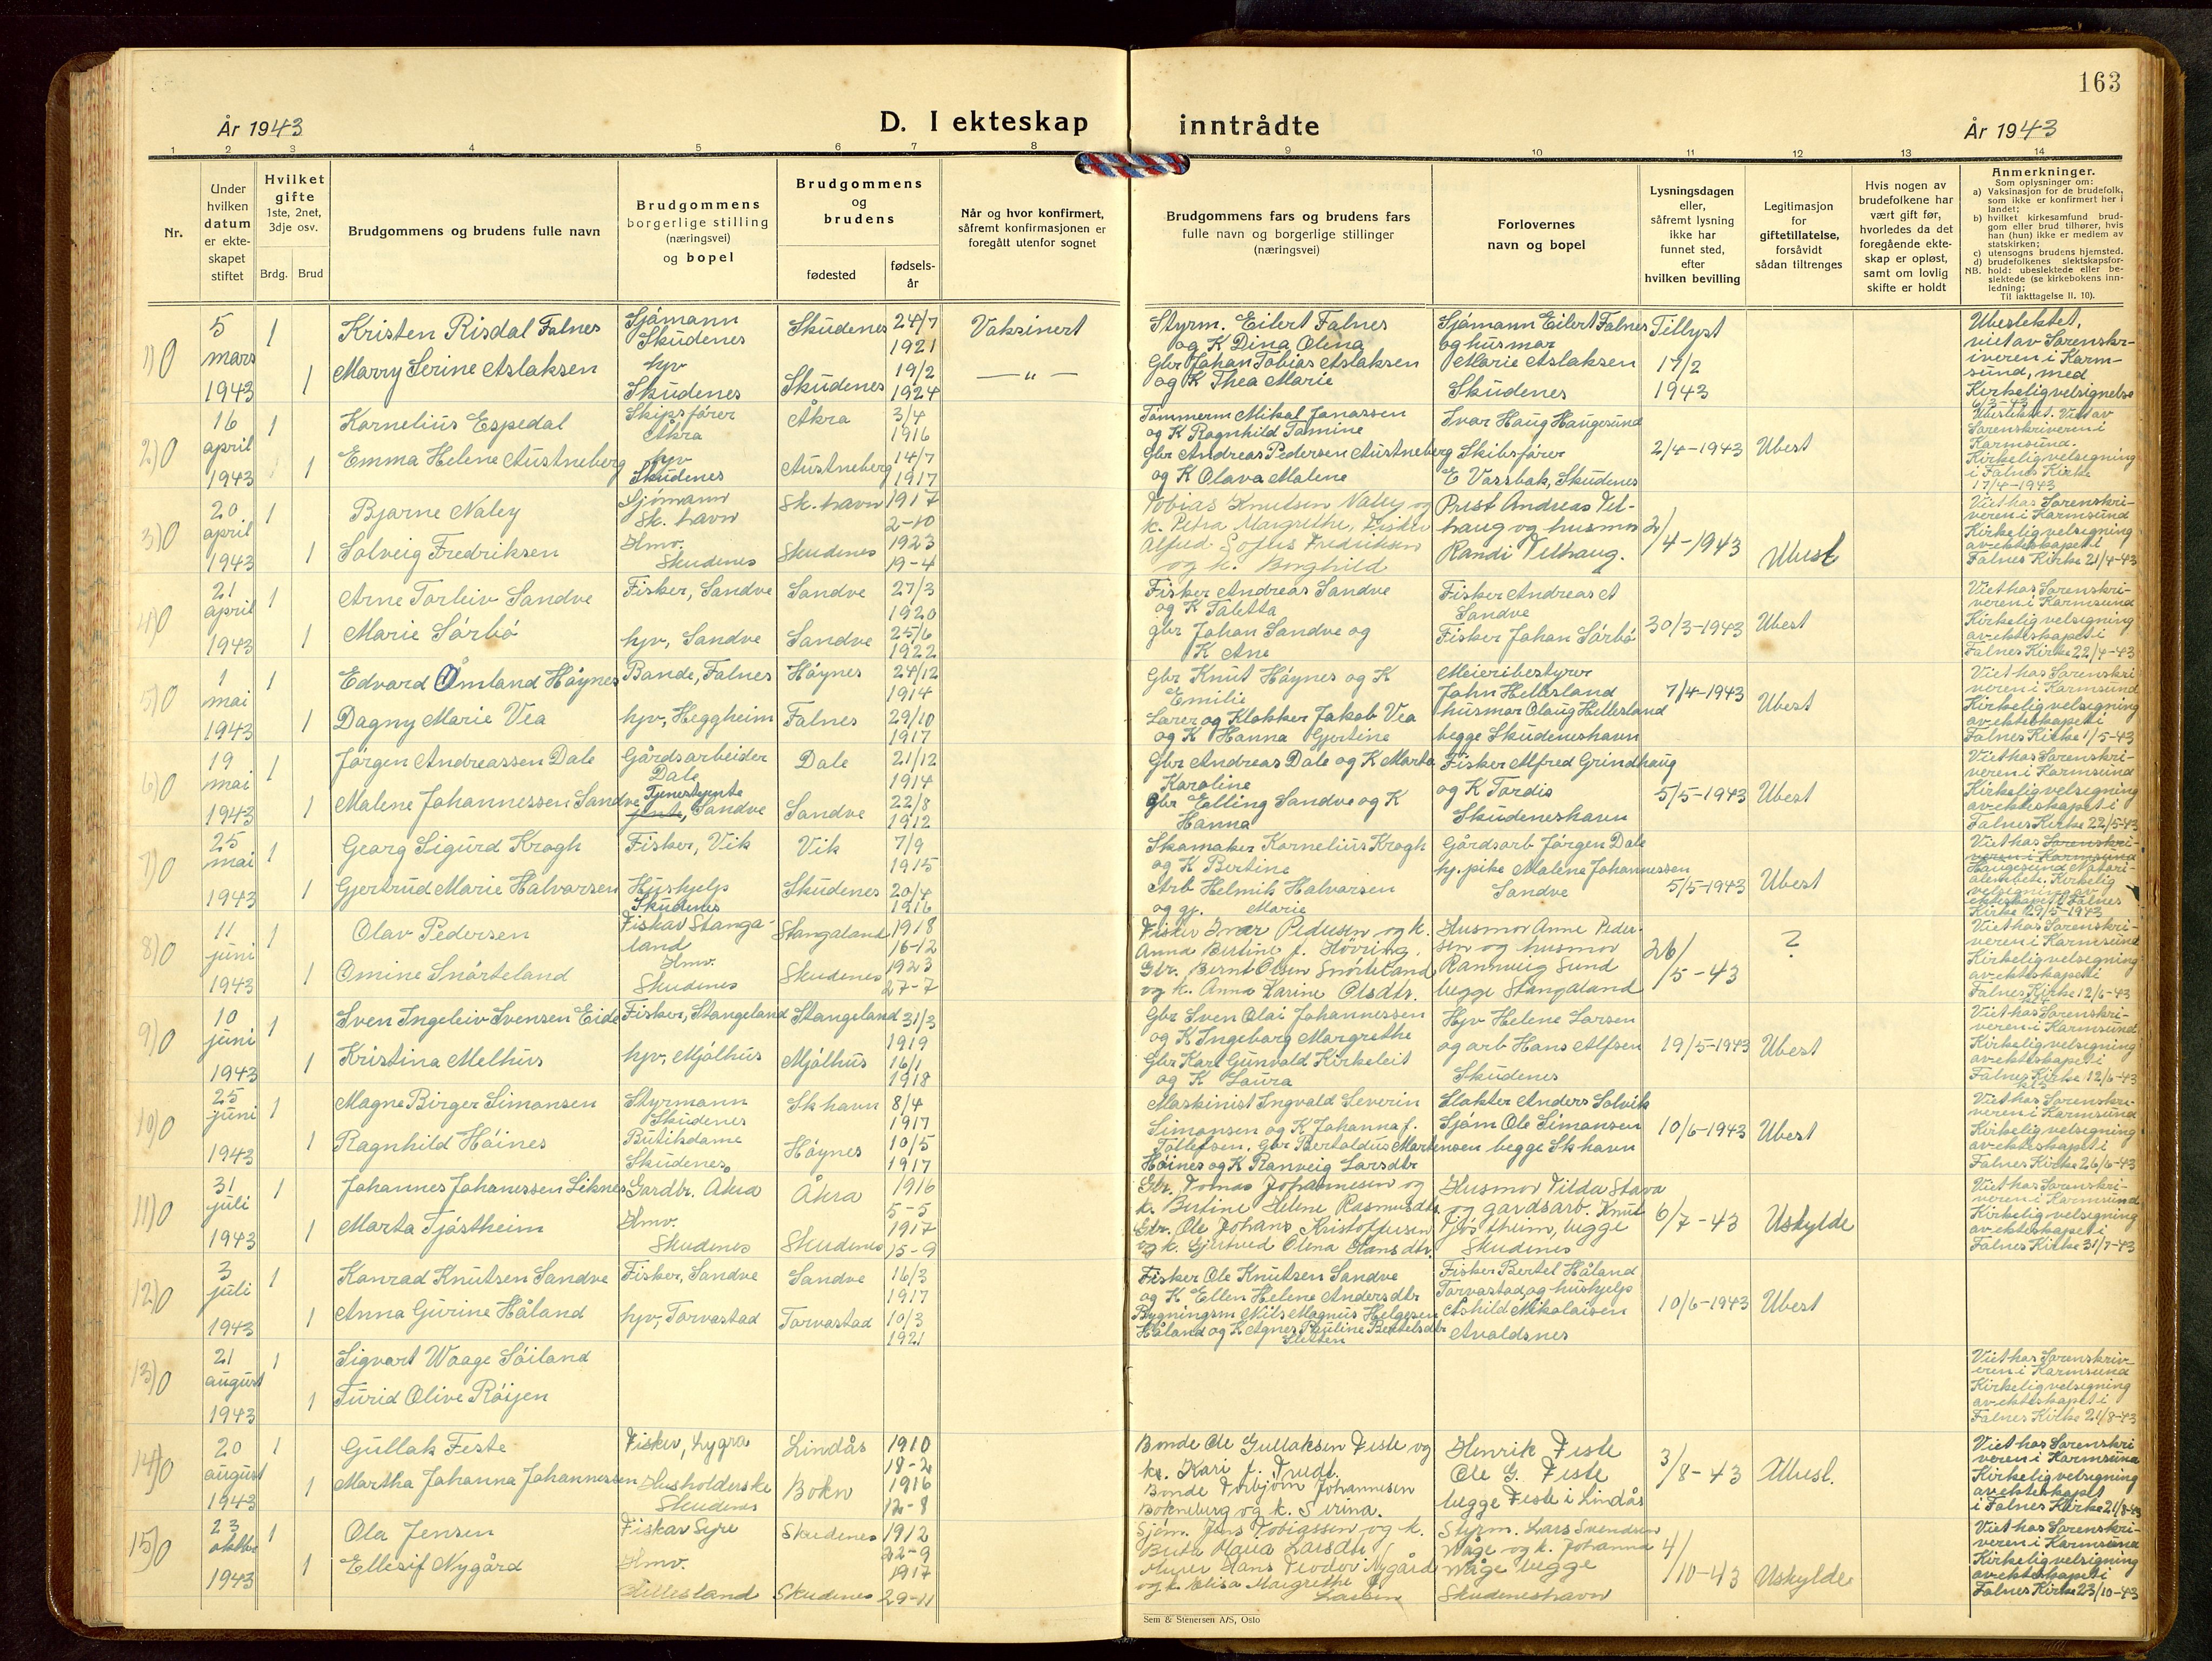 163
År 1943
D. I ekteskap inntrådte
År 1943
1 2 3 4 5 6 7 8 9 10 11 12 13 14
Nr.
Under hvilken datum er ekteskapet stiftet
Hvilket gifte 1ste, 2net, 3dje osv.
Brdg. Brud
Brudgommens og brudens fulle navn
Brudgommens borgerlige stilling (næringsvei) og bopel
Brudgommens og brudens
fødested
fødselsår
Når og hvor konfirmert, såfremt konfirmasjonen er foregått utenfor sognet
Brudgommens fars og brudens fars fulle navn og borgerlige stillinger (næringsvei)
Forlovernes navn og bopel
Lysningsdagen eller, såfremt lysning ikke har funnet sted, efter hvilken bevilling
Legitimasjon for giftetillatelse, forsåvidt sådan tiltrenges
Hvis nogen av brudefolkene har vært gift før, hvorledes da det foregående ekteskap er opløst, samt om lovlig skifte er holdt
Anmerkninger.
Som oplysninger om:
a) Vaksinasjon for de brudefolk, som ikke er konfirmert her i landet;
b) hvilket kirkesamfund brudgom eller brud tilhører, hvis han (hun) ikke er medlem av statskirken;
c) utensogns brudens hjemsted.
d) brudefolkenes slektskapsforhold: ubeslektede eller beslektede (se kirkebokens innledning;
NB.
Til iakttagelse II. 10).
1) 0 5 mars 1943
1 Kristen Risdal Falnes Sjömann Skudenes Skudenes 24/7 1921 Vaksinert
1 Marry Serine Aslaksen hjv Skudenes Skudenes 19/2 1924 — " —
Styrm. Eilert Falnes og K Dina Olena
Gbr Johan Tobias Aslaksen og K Thea Marie
Sjömann Eilert Falnes og husmor Marie Aslaksen Skudenes
Tillyst 17/2 1943
Ubeslektet, viet av Sorenskriveren i Karmsund, med Kirkelig velsignelse 6/3-43
2) 0 16 april 1943
1 Kornelius Espedal Skipsförer Åkra Åkra 3/4 1916
1 Emma Helene Austneberg hjv Skudenes Austneberg 14/7 1917
Tömmerm Mikal Jonassen og K Ragnhild Tomine
Gbr Andreas Pedersen Austneberg og K Olava Malene
Ivar Haug Haugesund
Skibsförer E Vassbak, Skudenes
2/4-1943 Ubest
Ubeslektet. Viet av Sorenskriveren i Karmsund. Kirkelig velsegning i Falnes Kirke 17/4-1943
3) 0 20 april 1943
1 Bjarne Naley Sjömann Sk. havn Sk. havn 1917 2-10
1 Solveig Fredriksen Hmv. Skudenes Skudenes 1923 19-4
Tobias Knutsen Naley og k. Petra Margrethe, Fisker
Alfred Sofus Fredriksen og k. Borghild
Prest Andreas Velhaug og husmor Randi Velhaug.
2/4-1943 Ubesl
Viet hos Sorenskriveren i Karmsund Kirkelig velsegning av ekteskapet i Falnes Kirke 21/4-43
4) 0 21 april 1943
1 Arne Torleiv Sandve Fisker, Sandve Sandve 27/3 1920
1 Marie Sörbö hjv, Sandve Sandve 25/6 1922
Fisker Andreas Sandve og K Taletta
gbr Johan Sandve og K Ane
Fisker Andreas A Sandve
Fisker Johan Sörbö
30/3-1943 Ubest
Viet hos Sorenskriveren i Karmsund Kirkelig velsegning av ekteskapet i Falnes Kirke 22/4-43
5) 0 1 mai 1943
1 Edvard Åmland Höynes Bonde, Falnes Höynes 24/12 1914
1 Dagny Marie Vea hjv, Heggheim Falnes 29/10 1917
Gbr Knut Höynes og K Emilie
Lærer og Klokker Jakob Vea og K Hanna Gjertine
Meieribestyrer John Hellesland husmor Olaug Hellesland begge Skudeneshavn
7/4-1943 Ubest
Viet hos Sorenskriveren i Karmsund Kirkelig velsegning av ekteskapet i Falnes Kirke 1/5-43
6) 0 19 mai 1943
1 Jörgen Andreassen Dale Gårdsarbeider Dale Dale 21/12 1914
1 Malene Johannessen Sandve Tjenestejente Sandve Sandve 22/8 1912
Gbr Andreas Dale og K Marta Karoline
Gbr Elling Sandve og K Hanna
Fisker Alfred Grindhaug og K Tordis Skudeneshavn
5/5-1943 Ubest
Viet hos Sorenskriveren i Karmsund Kirkelig velsegning av ekteskapet i Falnes Kirke 22/5-43
7) 0 25 mai 1943
1 Georg Sigurd Krogh Fisker, Vik Vik 7/9 1915
1 Gjertrud Marie Halvorsen Hushjelp Skudenes Skudenes 20/4 1916
Skomaker Kornelius Krogh og K Bertine
Arb Helmik Halvorsen og gj. Marie
Gårdsarb Jörgen Dale
hj. pike Malene Johannessen Sandve
5/5-1943 Ubest
Viet hos Sorenskriveren i Karmsund Haugesund Notarialembet. Kirkelig velsegning av ekteskapet i Falnes Kirke 29/5-1943
8) 0 11 juni 1943
1 Olav Pedersen Fisker Stangaland Stangaland 1918 16-12
1 Omine Snörteland Hmv. Skudenes Skudenes 1923 27-7
Fisker Ivar Pedersen og k. Anna Bertine f. Hövring.
Gbr. Bernt Olsen Snörteland og k. Anna Karine Olsdtr.
Husmor Anne Pedersen og husmor Rannveig Sund begge Stangaland
26/5-43 ?
Viet hos Sorenskriveren i Karmsund Kirkelig velsegning av ekteskapet i Falnes Kirke 12/6-43
9) 0 10 juni 1943
1 Sven Ingeleiv Svensen Eide Fisker, Stangeland Stangeland 31/3 1919
1 Kristina Melhus hjv, Mjölhus Mjölhus 16/1 1918
Gbr Sven Olai Johannessen og K Ingeborg Margrethe
Gbr Karl Gunvald Kirkeleit og K Laura
Hjv Helene Larsen og arb Hans Alfsen Skudenes
19/5-1943 Ubest
Viet hos Sorenskriveren i Karmsund Kirkelig velsegning av ekteskapet i Falnes Kirke 12/6-43
10) 0 25 juni 1943
1 Magne Birger Simonsen Styrmann Skudenes Sk havn 8/4 1917
1 Ragnhild Höines Butikdame Skudenes Höynes 10/5 1917
Maskinist Ingvald Severin Simonsen og K Johanna f. Tollefsen. Gbr Bertoldus Martensen Höines og K Ranveig Larsdtr
Slakter Anders Solvik
Sjöm Ole Simonsen begge Sk havn
10/6-1943 Ubest
Viet hos Sorenskriveren i Karmsund Kirkelig velsegning av ekteskapet i Falnes Kirke 26/6-43
11) 0 31 juli 1943
1 Johannes Johannessen Liknes Gardbr. Åkra Åkra 1916 5-5
1 Marta Tjöstheim Hmv. Skudenes Skudenes 1917 15-9
Gbr. Tomas Johannesen og k. Bertine Helene Rasmusdtr.
Gbr. Ole Johans Kristoffersen og k. Gjertrud Olena Hansdtr.
Husmor Tilda Stava og gardsarb. Knut Tjöstheim, begge Skudenes
6/7-43 Uskylde
Viet hos Sorenskriveren i Karmsund Kirkelig velsegning av ekteskapet i Falnes Kirke 31/7-43
12) 0 3 juli 1943
1 Konrad Knutsen Sandve Fisker, Sandve Sandve 16/3 1917
1 Anna Gurine Håland hjv, Torvastad Torvastad 10/3 1921
Fisker Ole Knutsen Sandve og K Ellen Helene Andersdtr
Bygningsm Niils Magnus Helgesen Håland og K Agnes Pauline Bertelsdtr Sletten
Fisker Bertel Håland Torvastad og hushjelp Åshild Mikolaisen Avaldsnes
10/6-1943 Ubest
13) 0 21 august 1943
1 Sigvart Waage Söiland
1 Turid Olive Röijen
Viet hos Sorenskriveren i Karmsund Kirkelig velsegning av ekteskapet i Falnes Kirke 21/8-43
14) 0 20 august 1943
1 Gullak Feste Fisker, Lygra Lindås 1910 18-2
1 Martha Johanna Johannessen Husholderske Skudenes Bokn 1916 12-8
Bonde Ole Gullaksen Feste og k. Kari f. Trudt.
Bonde Torbjörn Johannesen Bokneberg og k. Serina.
Henrik Feste
Ole G. Feste begge Feste i Lindås
3/8-43 Ubesl.
Viet hos Sorenskriveren i Karmsund Kirkelig velsegning av ekteskapet i Falnes Kirke 21/8-43
15) 0 23 oktbr 1943
1 Ola Jensen Fiskar Syre Skudenes 1912 22-9
1 Ellesif Nygård Hmv. Lillesland Skudenes 1917 29-11
Sjöm. Jens Tobiassen og k. Berta Maria Larsdtr
Murer Hans Teodor Nygård og k. Elisa Margrethe Larsen
Styrm. Lars Svendsen Våge og k. Johanna Våge begge Skudeneshavn
4/10-43 Uskylde
Viet hos Sorenskriveren i Karmsund Kirkelig velsigning av ekteskapet i Falnes Kirke 23/10-43
Sem & Stenersen A/S, Oslo